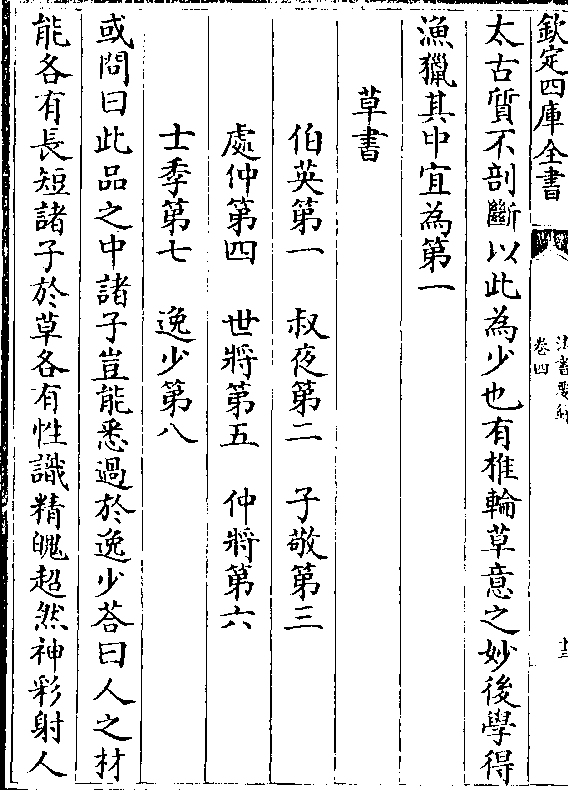 欽定四庫全書
法書要錄
卷四
十三
太古質不剖斷以此為少也有椎輪草意之妙後學得
漁獵其中宜為第一
草書
伯英第一　叔夜第二　子敬第三
處仲第四　世將第五　仲將第六
士季第七　逸少第八
或問曰此品之中諸子豈能悉過於逸少荅曰人之材
能各有長短諸子於草各有性識精魄超然神彩射人